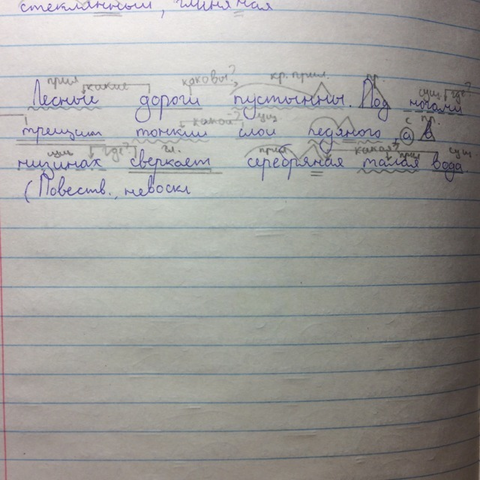 стеклянный, глиняная
прил какие каковы? кр. прил. пр.
Лесные дороги пустынны. Под ногами
сущ где?
какой? сущ с пр.
трещит тонкий слой ледяного, а В
сущ где? гл. прил какая? прил сущ
низинах сверкает серебряная талая вода
(Повеств., невоскл